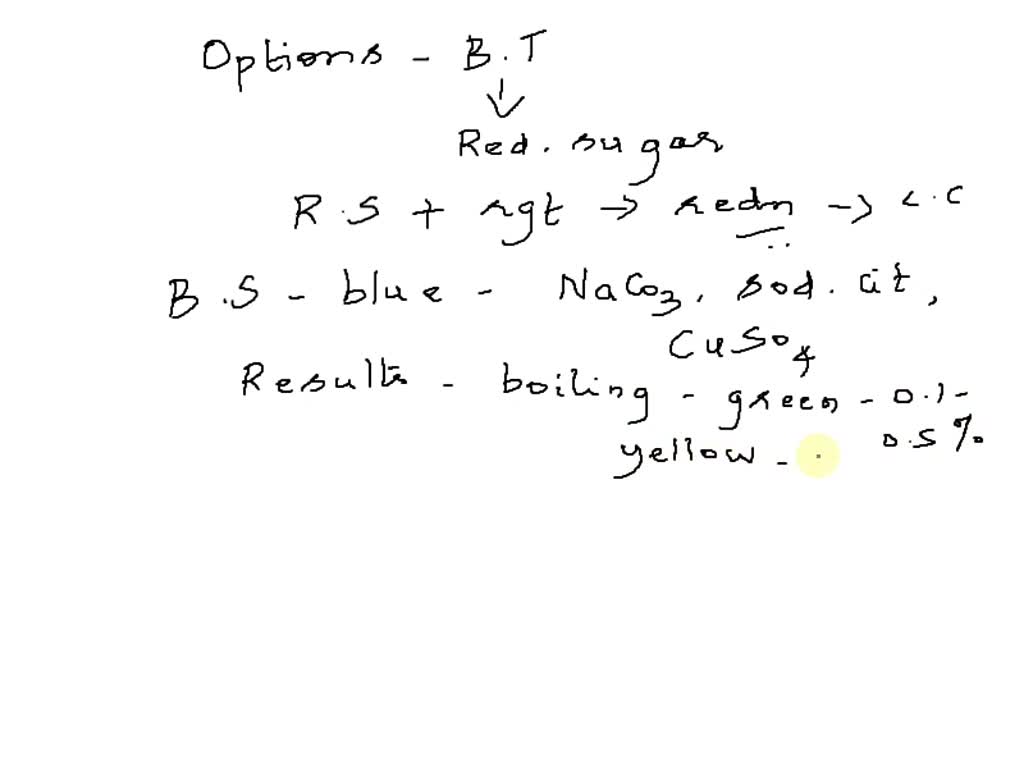 Options - B.T
↓
Red. sugar
R.S + rgt → redn → C.C
B.S - blue - NaCO3, sod. cit,
CuSO4
Results - boiling - green - 0.1 -
0.5%
yellow -